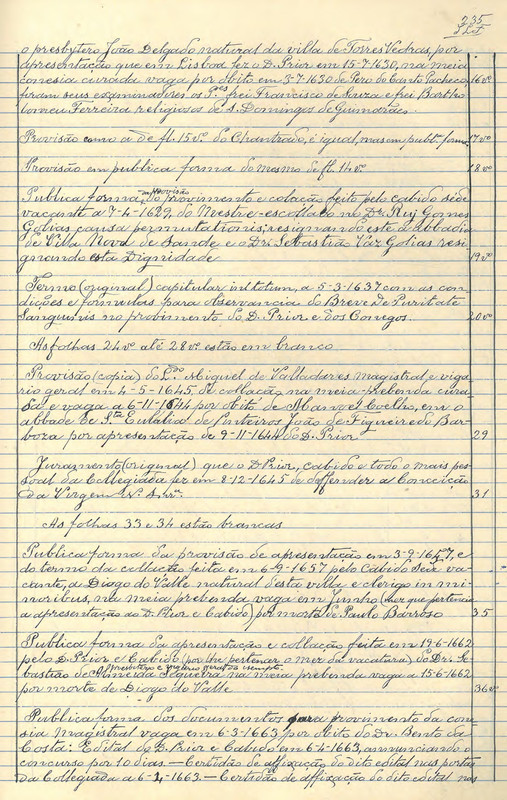 235
o presbytero João Delgado natural da villa de Torres Vedras, por
apresentação que em Lisboa fez o D. Prior em 15-7-1650, na meia
conesia curada vaga por obito em 3-7-1650 de Pero do Canto Pacheco, 16vº
foram seus examinadores os Pes frei Francisco de Souza e frei Bartho-
lomeu Ferreira religiosos de S. Domingos de Guimarães.
Provisão como a de fl. 15vº do Chantrado, é igual, mas em publ. forma. 17vº
Provisão em publica forma do mesmo de fl. 14vº 18vº
Publica forma em provisão do provimento e colação feito pelo cabido sede
vacante a 7-4-1629, do Mestre-escollado no Dr. Ruj Gomes
Golias causa permutationis, resignando este a abbadia
de Villa Nova de Sande e o Dr. Sebastião Vaz Golias resi-
gnando esta Dignidade 19vº
Termo (original) capitular in totum, a 5-3-1637 com as con-
dições e formulas para observancia do Breve de Puritate
Sanguinis no probimento do D. Prior e dos Conegos. 20vº
As folhas 24vº até 28vº estão em branco
Provisão (copia) do L.do Miguel de Valladares magistral e viga-
rio geral em 4-5-1645, de collação na meia prebenda cura-
da e vaga a 6-11-1644 por obito de Manoel Coelho, em o
abbade de Sta Eulalia de Inteiros João de Figueiredo Bar-
boza por apresentação de 9-11-1644 do D. Prior 29
Juramento (original) que o D. Prior, cabido e todo o mais pes-
soal da Collegiada fez em 8-12-1645 de deffender a Conceição
da Virgem Nª Snrª 31
As folhas 33 e 34 estão brancas
Publica forma da provisão de apresentação em 3-9-1657, e
do termo da collação feita em 6-9-1657 pelo Cabido Sede va-
cante, a Diogo do Valle natural desta villa e clerigo in mi-
noribus, na meia prebenda vaga em Junho (mez que pertencia
a apresentação ao D. Prior e Cabido) por morte de Paulo Barroso 35
Publica forma da apresentação e collação feita em 19-6-1662
pelo D. Prior e Cabido (por lhe pertencer o mez da vacatura) do Dr. Se-
bastião de Almeida Sequeira na meia prebenda vaga a 15-6-1662
por morte de Diogo do Valle 36vº
Publica forma dos documentos para provimento da cone-
sia Magistral vaga em 6-3-1663 por obito do Dr. Bento da
Costa: Edital do D. Prior e Cabido em 6-4-1663, annunciando o
concurso por 10 dias. — Certidão de affixação do dito edital nas portas
da Collegiada a 6-4-1663. — Certidão de affixação do dito edital nas